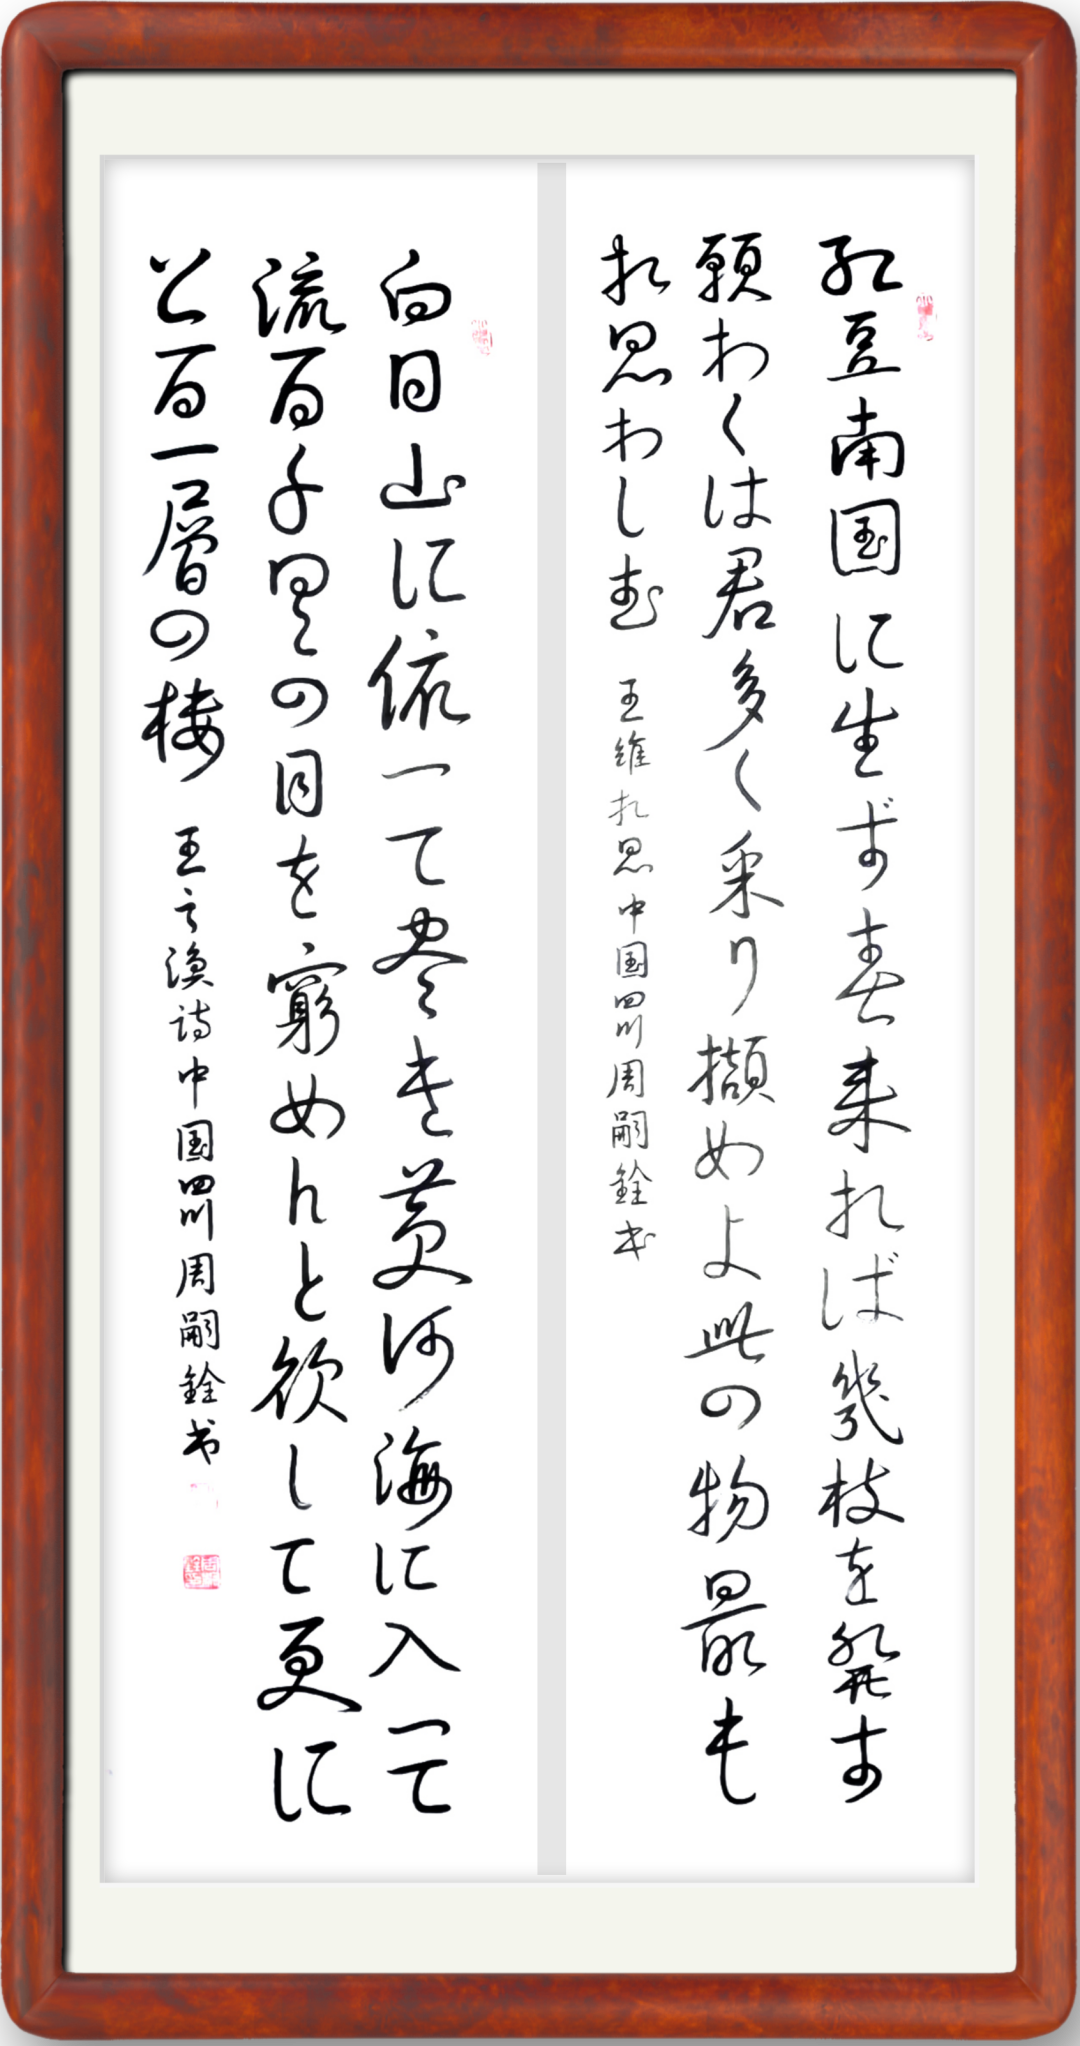 紅豆南国に生ず春来れば幾枝を発す
願わくは君多く采り擷めよ此の物最も
相思わしむ
王維相思中国四川周嗣銓书
白日山に依って尽き黄河海に入って
流百千里の目を窮めんと欲して更に
百一層の楼
王之渙詩中国四川周嗣銓书